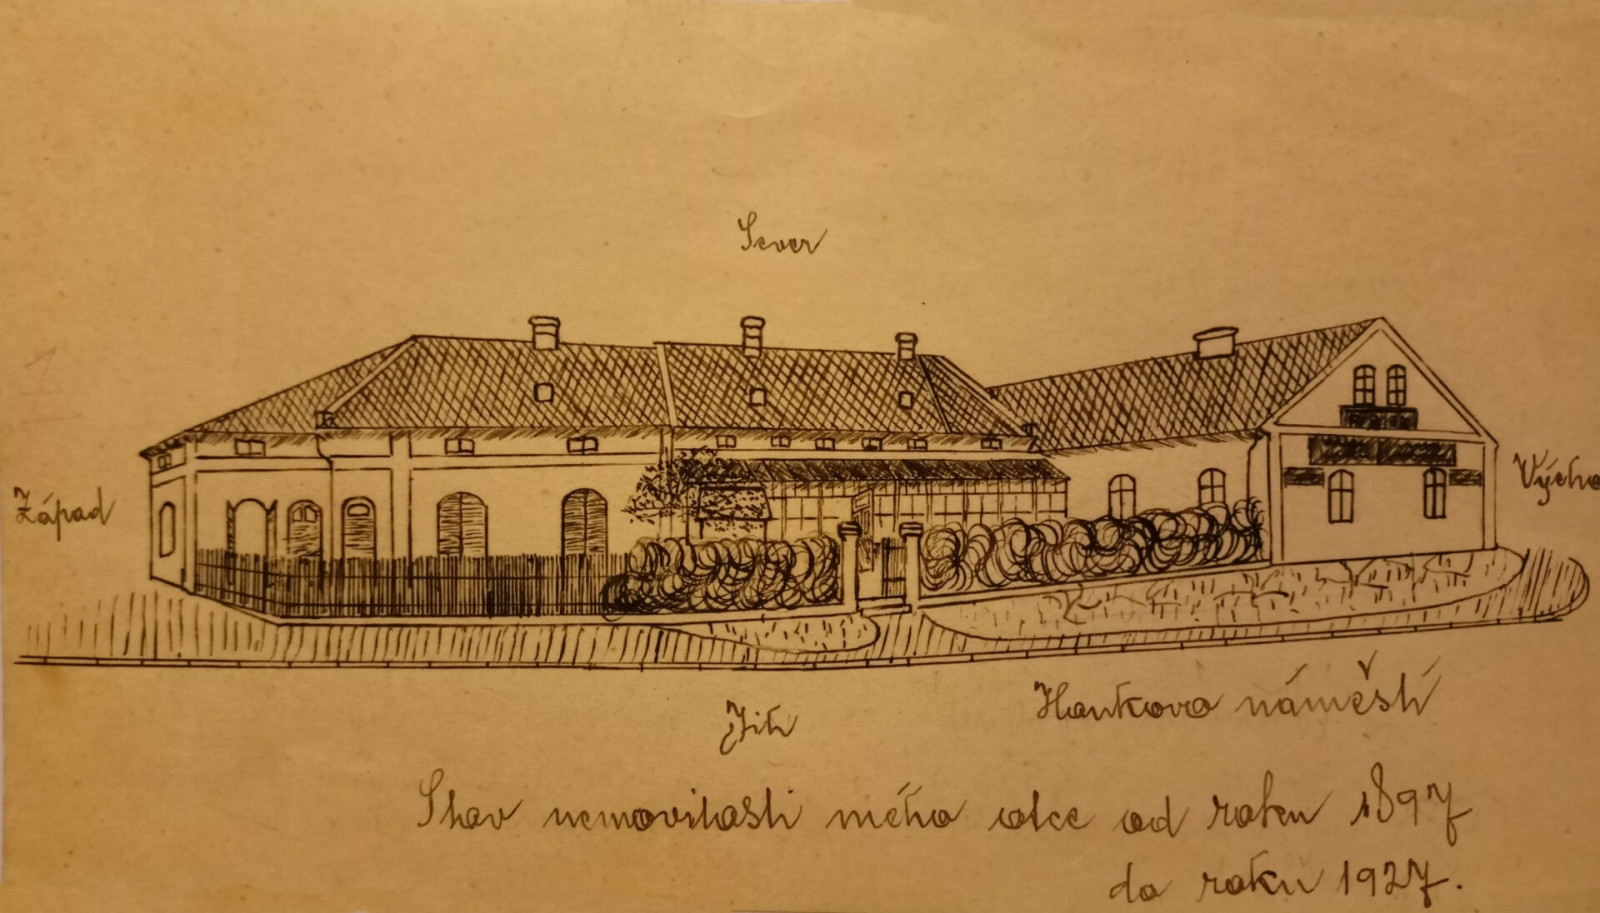 Sever
Západ
Výcho
Jih
Hankovo náměstí
Stav nemovitosti mého otce od roku 1897
do roku 1927.